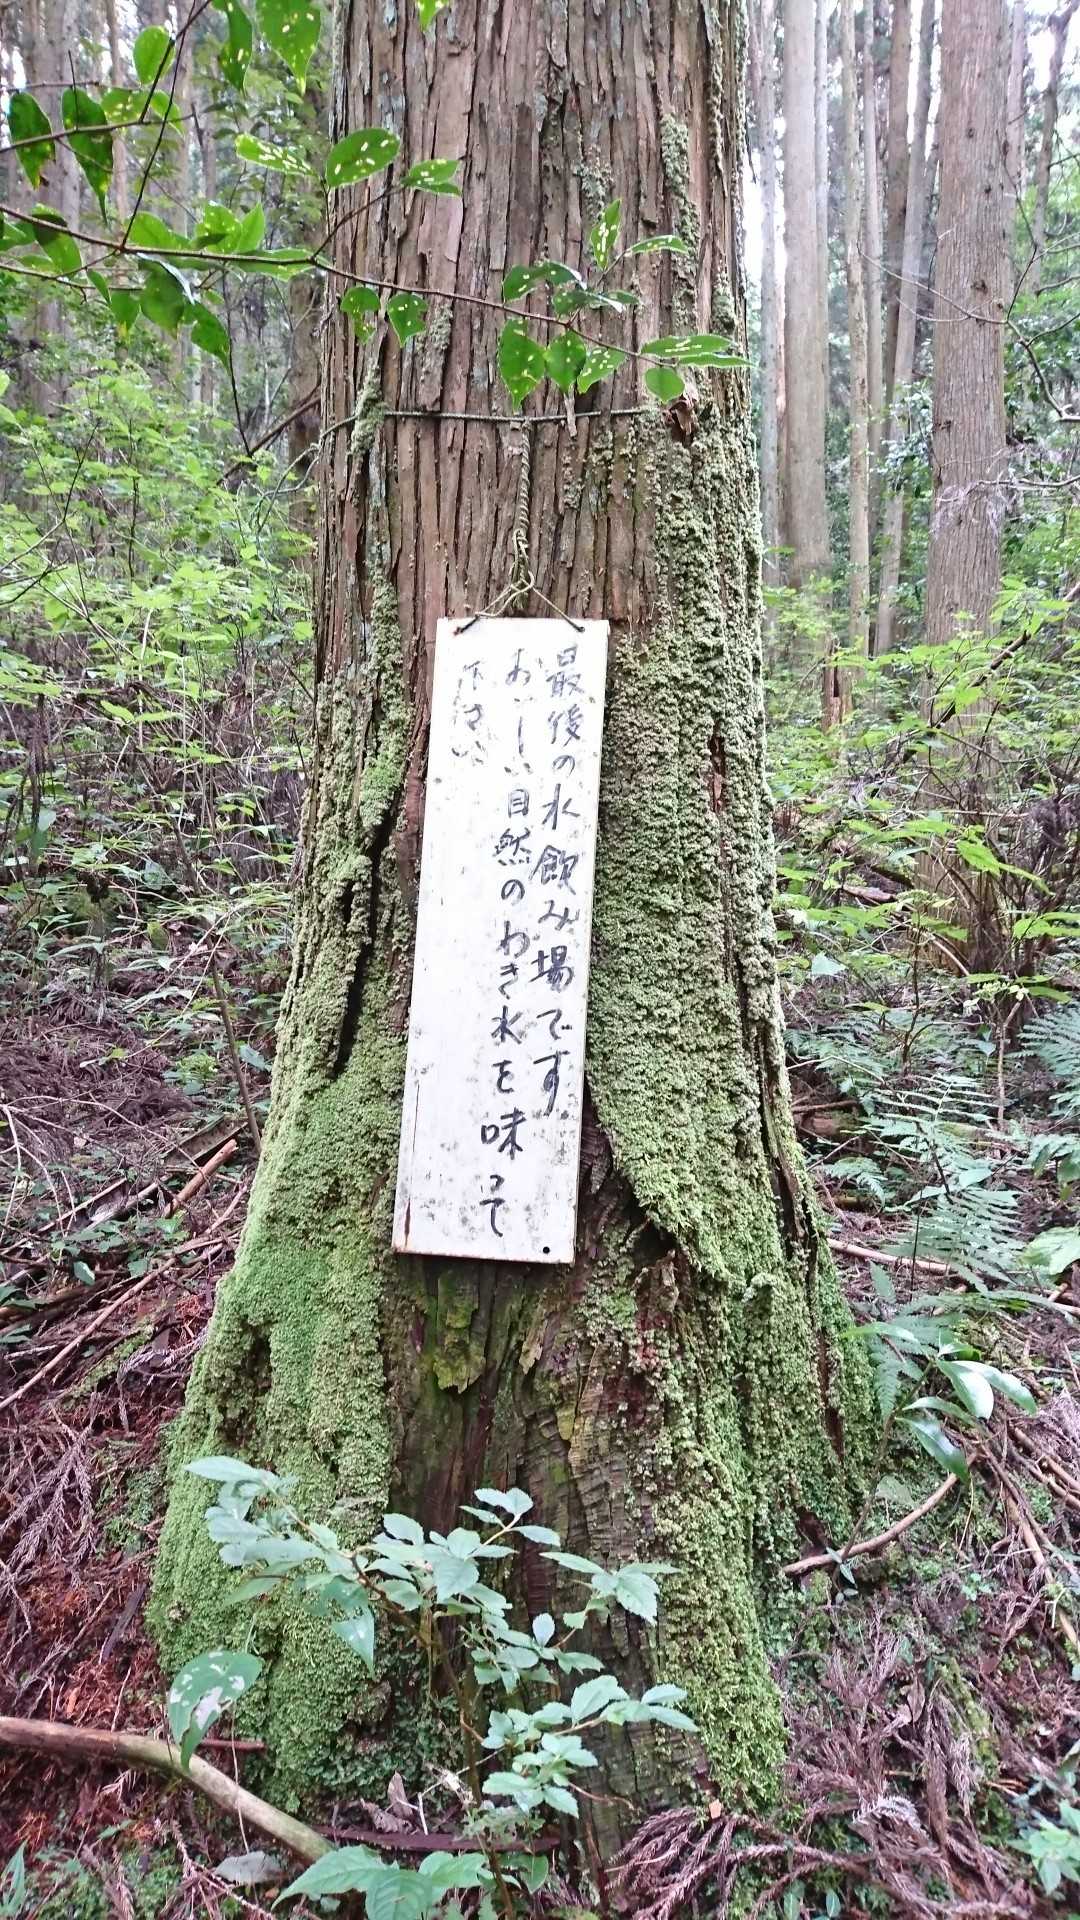 最後の水飲み場です
おいしい自然のわき水を味って
下さい